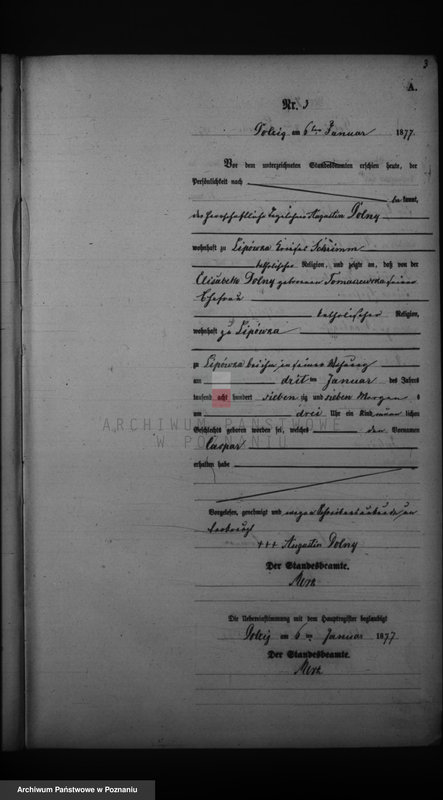 3
A.
Nr. 3
Dolzig am 6ten Januar 1877.
Vor dem unterzeichneten Standesbeamten erschien heute, der
Persönlichkeit nach
bekannt,
der herrschaftliche Tagelöhner Augustin Dolny
wohnhaft zu Lipówka Kreises Schrimm
katholischer Religion, und zeigte an, daß von der
Elisabeth Dolny geborenen Tomaszewska seiner
Ehefrau
katholischer Religion,
wohnhaft zu Lipówka
zu Lipówka bei ihm in seiner Wohnung
am dritten Januar des Jahres
tausend acht hundert siebenzig und sieben Morgens
um drei Uhr ein Kind männlichen
Geschlechts geboren worden sei, welches den Vornamen
Caspar
erhalten habe
Vorgelesen, genehmigt und wegen Schreibensunkunde
+++ Augustin Dolny
Der Standesbeamte.
Die Uebereinstimmung mit dem Hauptregister beglaubigt
Dolzig am 6ten Januar 1877
Der Standesbeamte.
ARCHIWUM PAŃSTWOWE
W POZNANIU
Archiwum Państwowe w Poznaniu